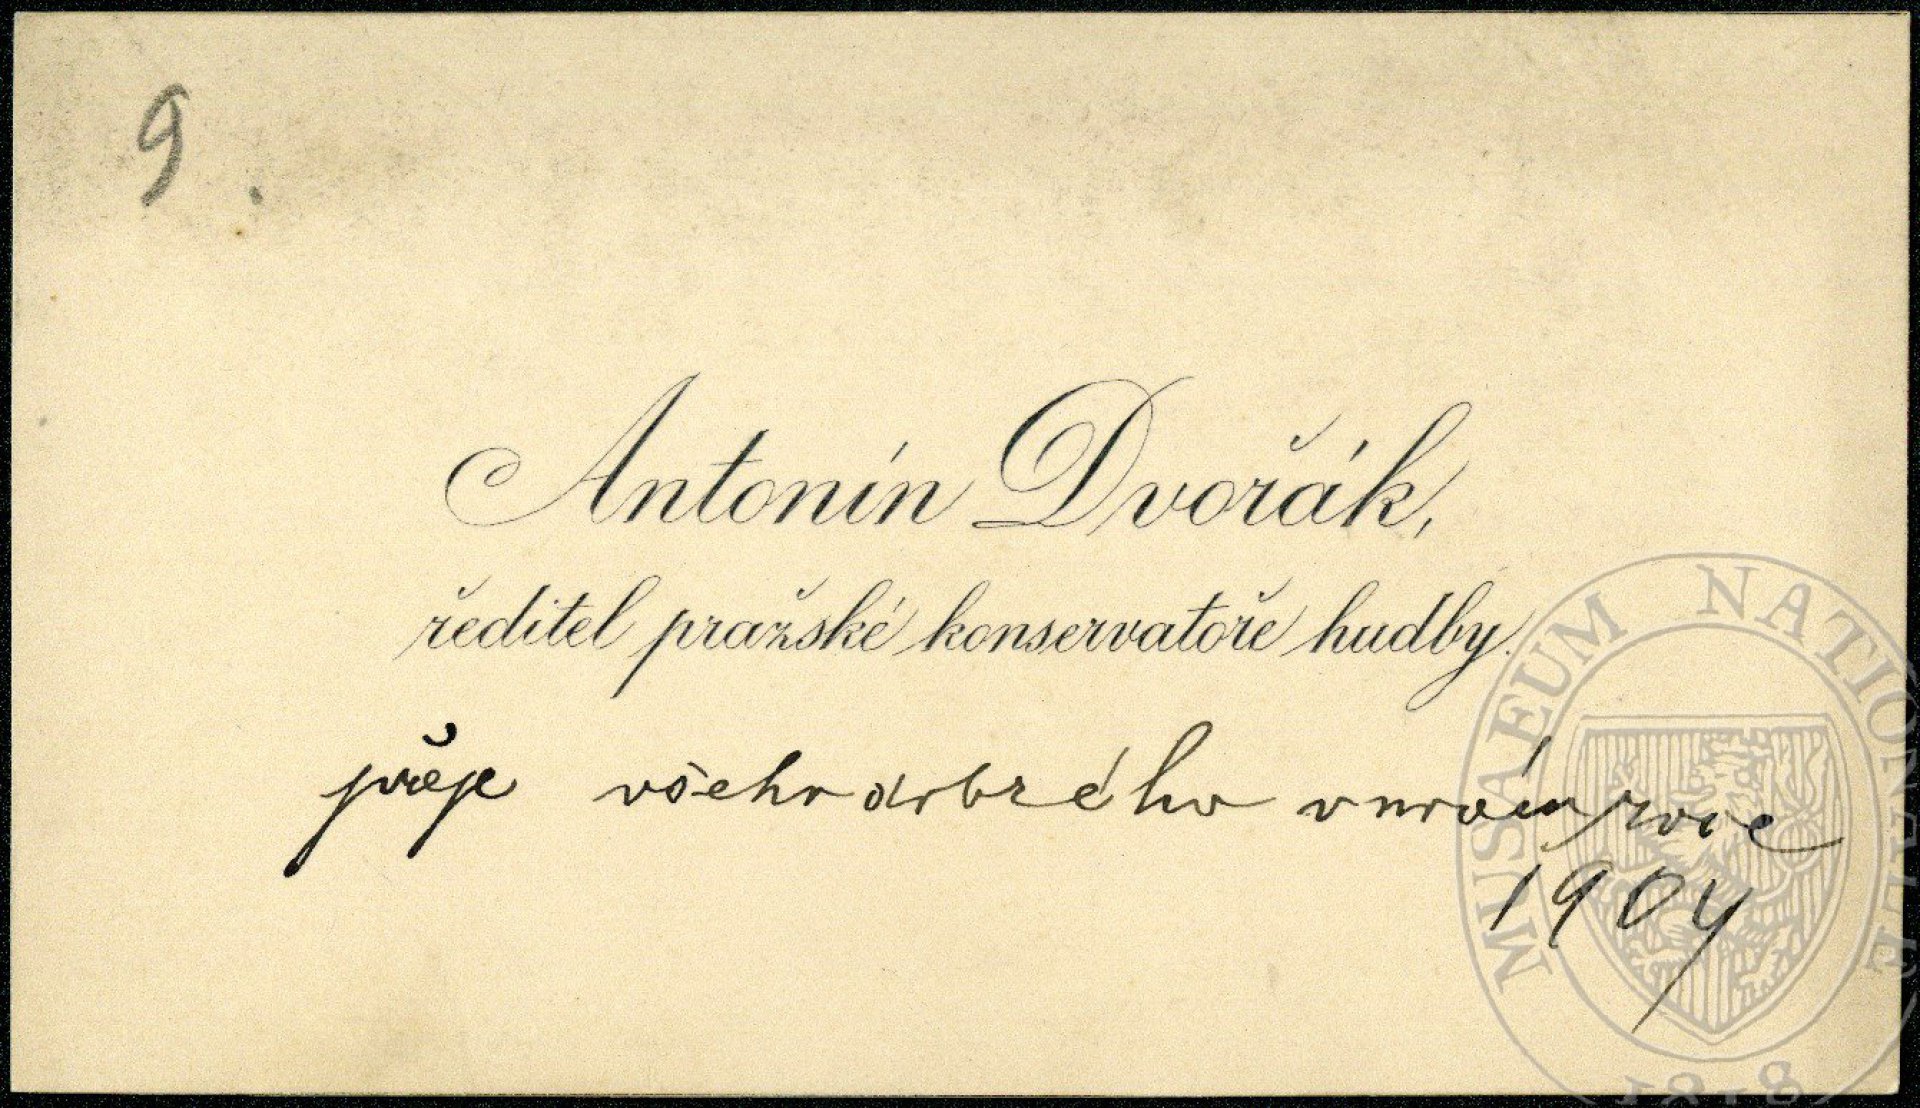 9.
Antonín Dvořák,
ředitel pražské konservatoře hudby.
přeje všeho dobrého v novém roce
1904
MUSAEUM NATIONALE
1818